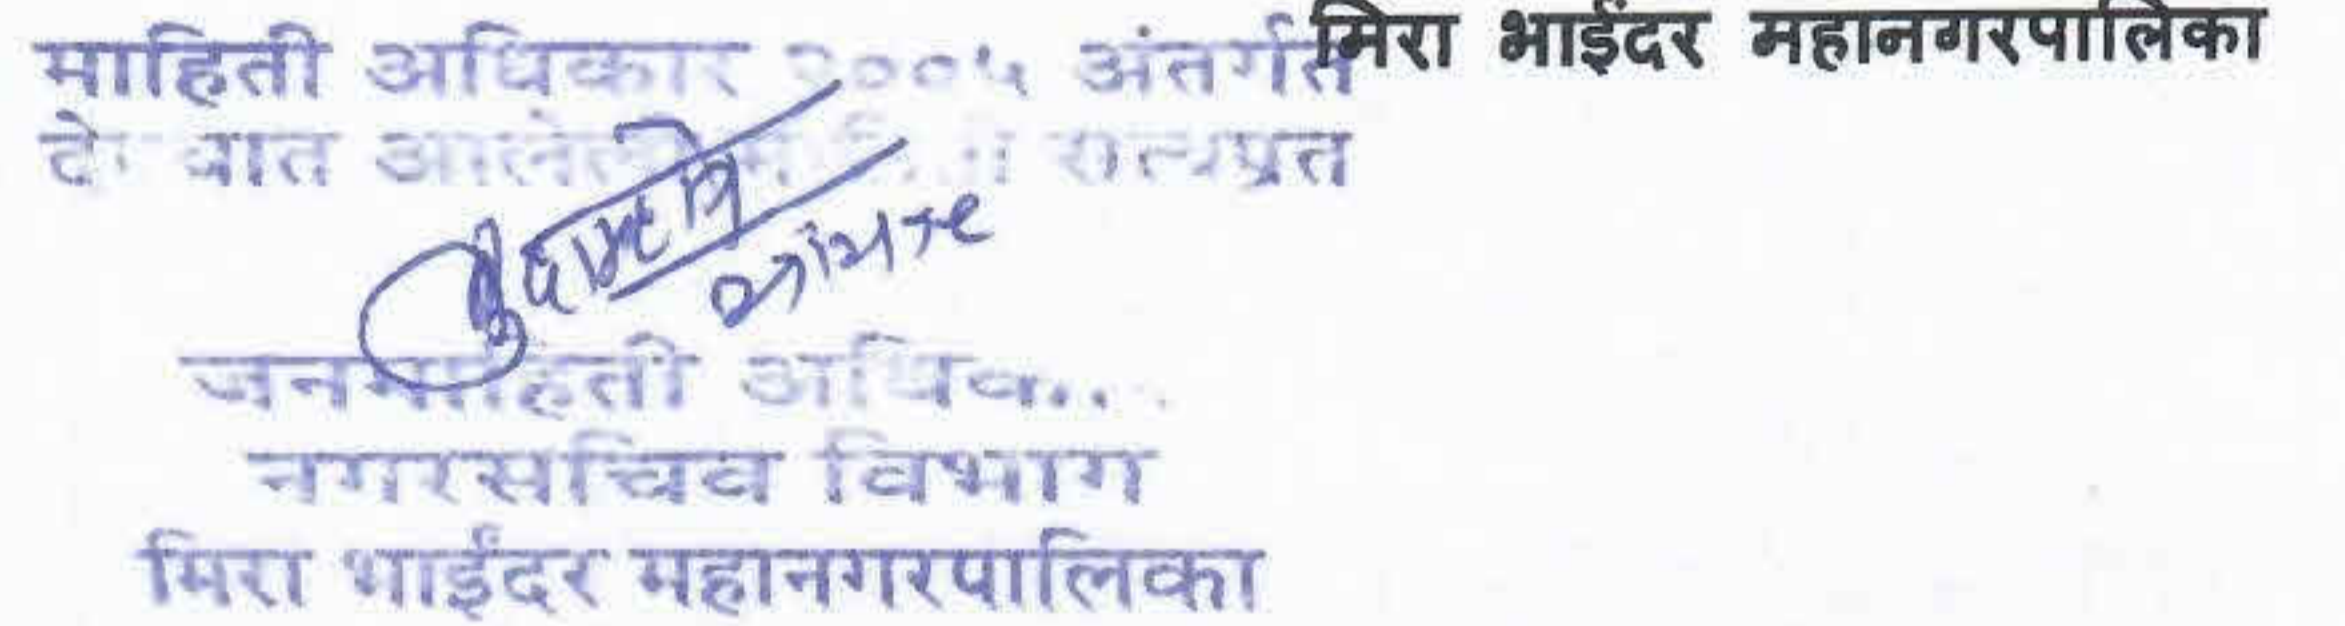 मिरा भाईंदर महानगरपालिका
माहिती अधिकार २००५ अंतर्गत
आलेली सत्यप्रत
जनमाहिती
नगरसचिव विभाग
मिरा भाईंदर महानगरपालिका